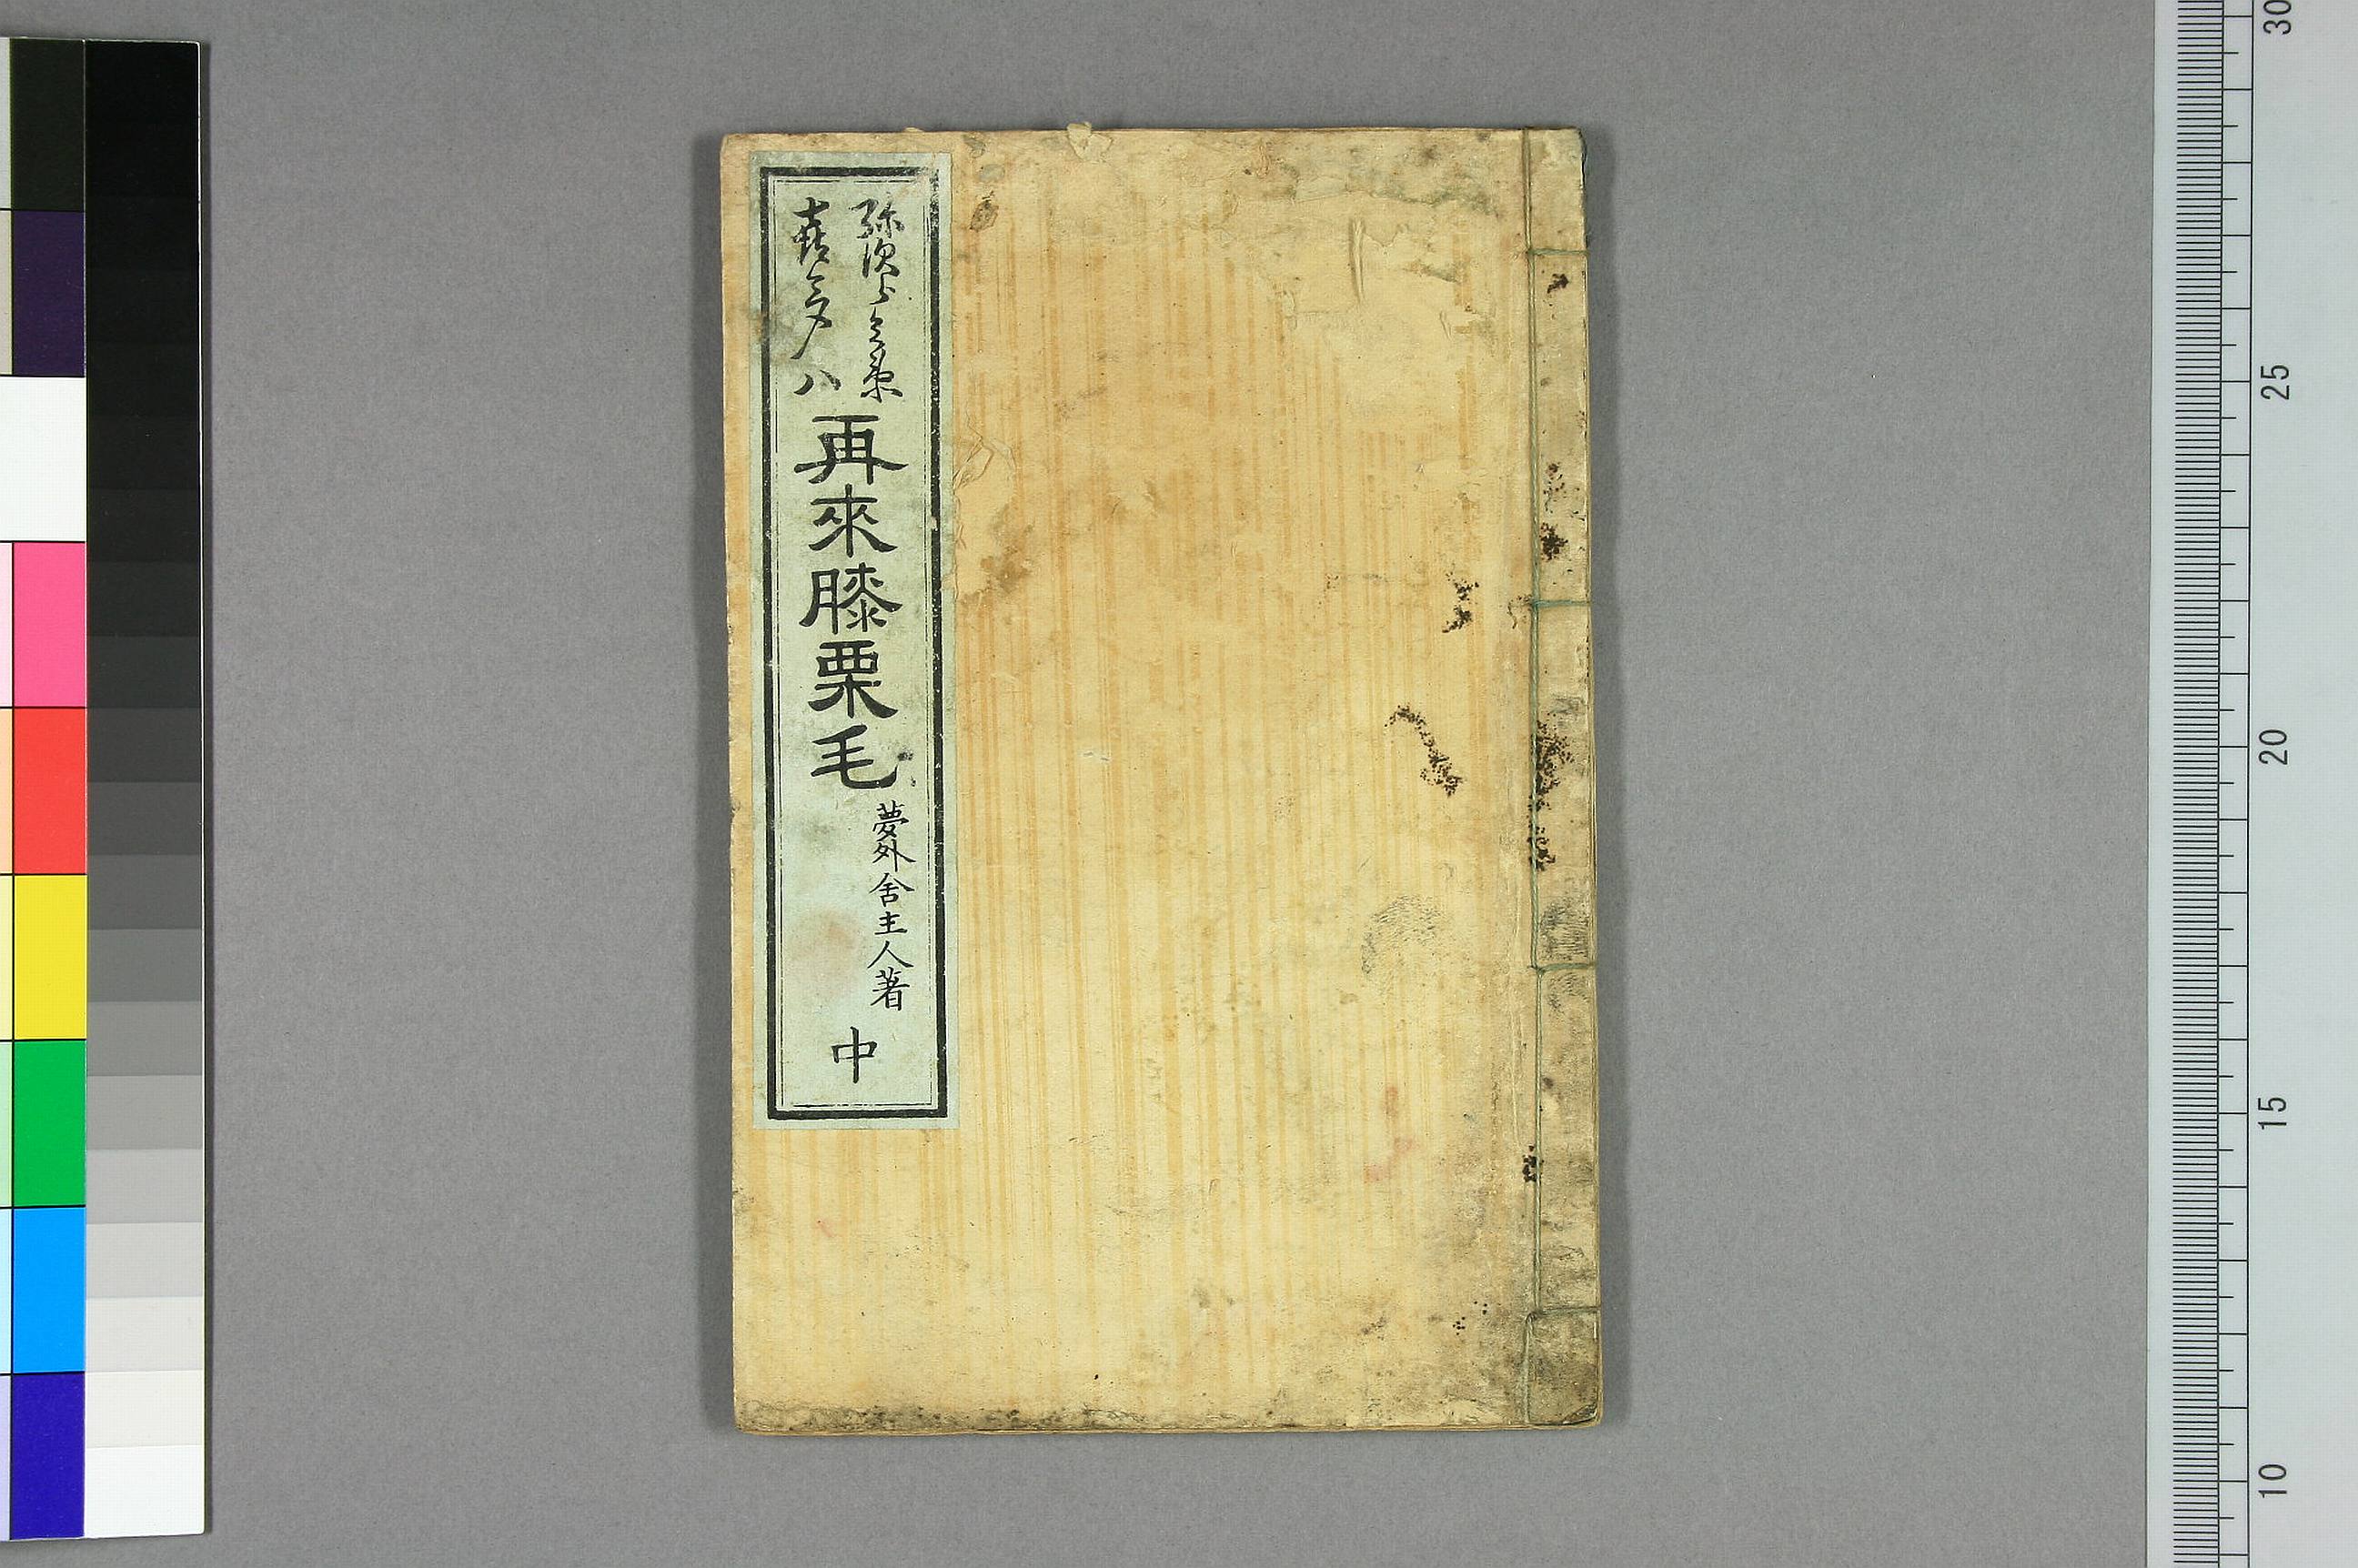 弥次郎兵衛
喜多八
再來膝栗毛
夢外舎主人著
中
30
25
20
15
10